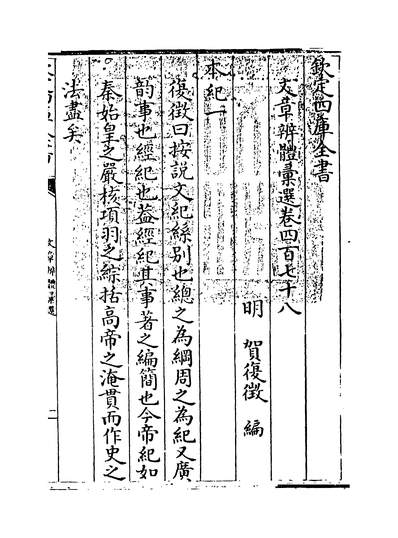 欽定四庫全書
文章辨體彙選卷四百七十八
明　賀復徵　編
本紀一
復徵曰按説文紀絲别也總之為綱周之為紀又廣
韵事也經紀也葢經紀其事著之編簡也今帝紀如
秦始皇之嚴核項羽之綜括高帝之淹貫而作史之
法盡矣
文章辨體彙選